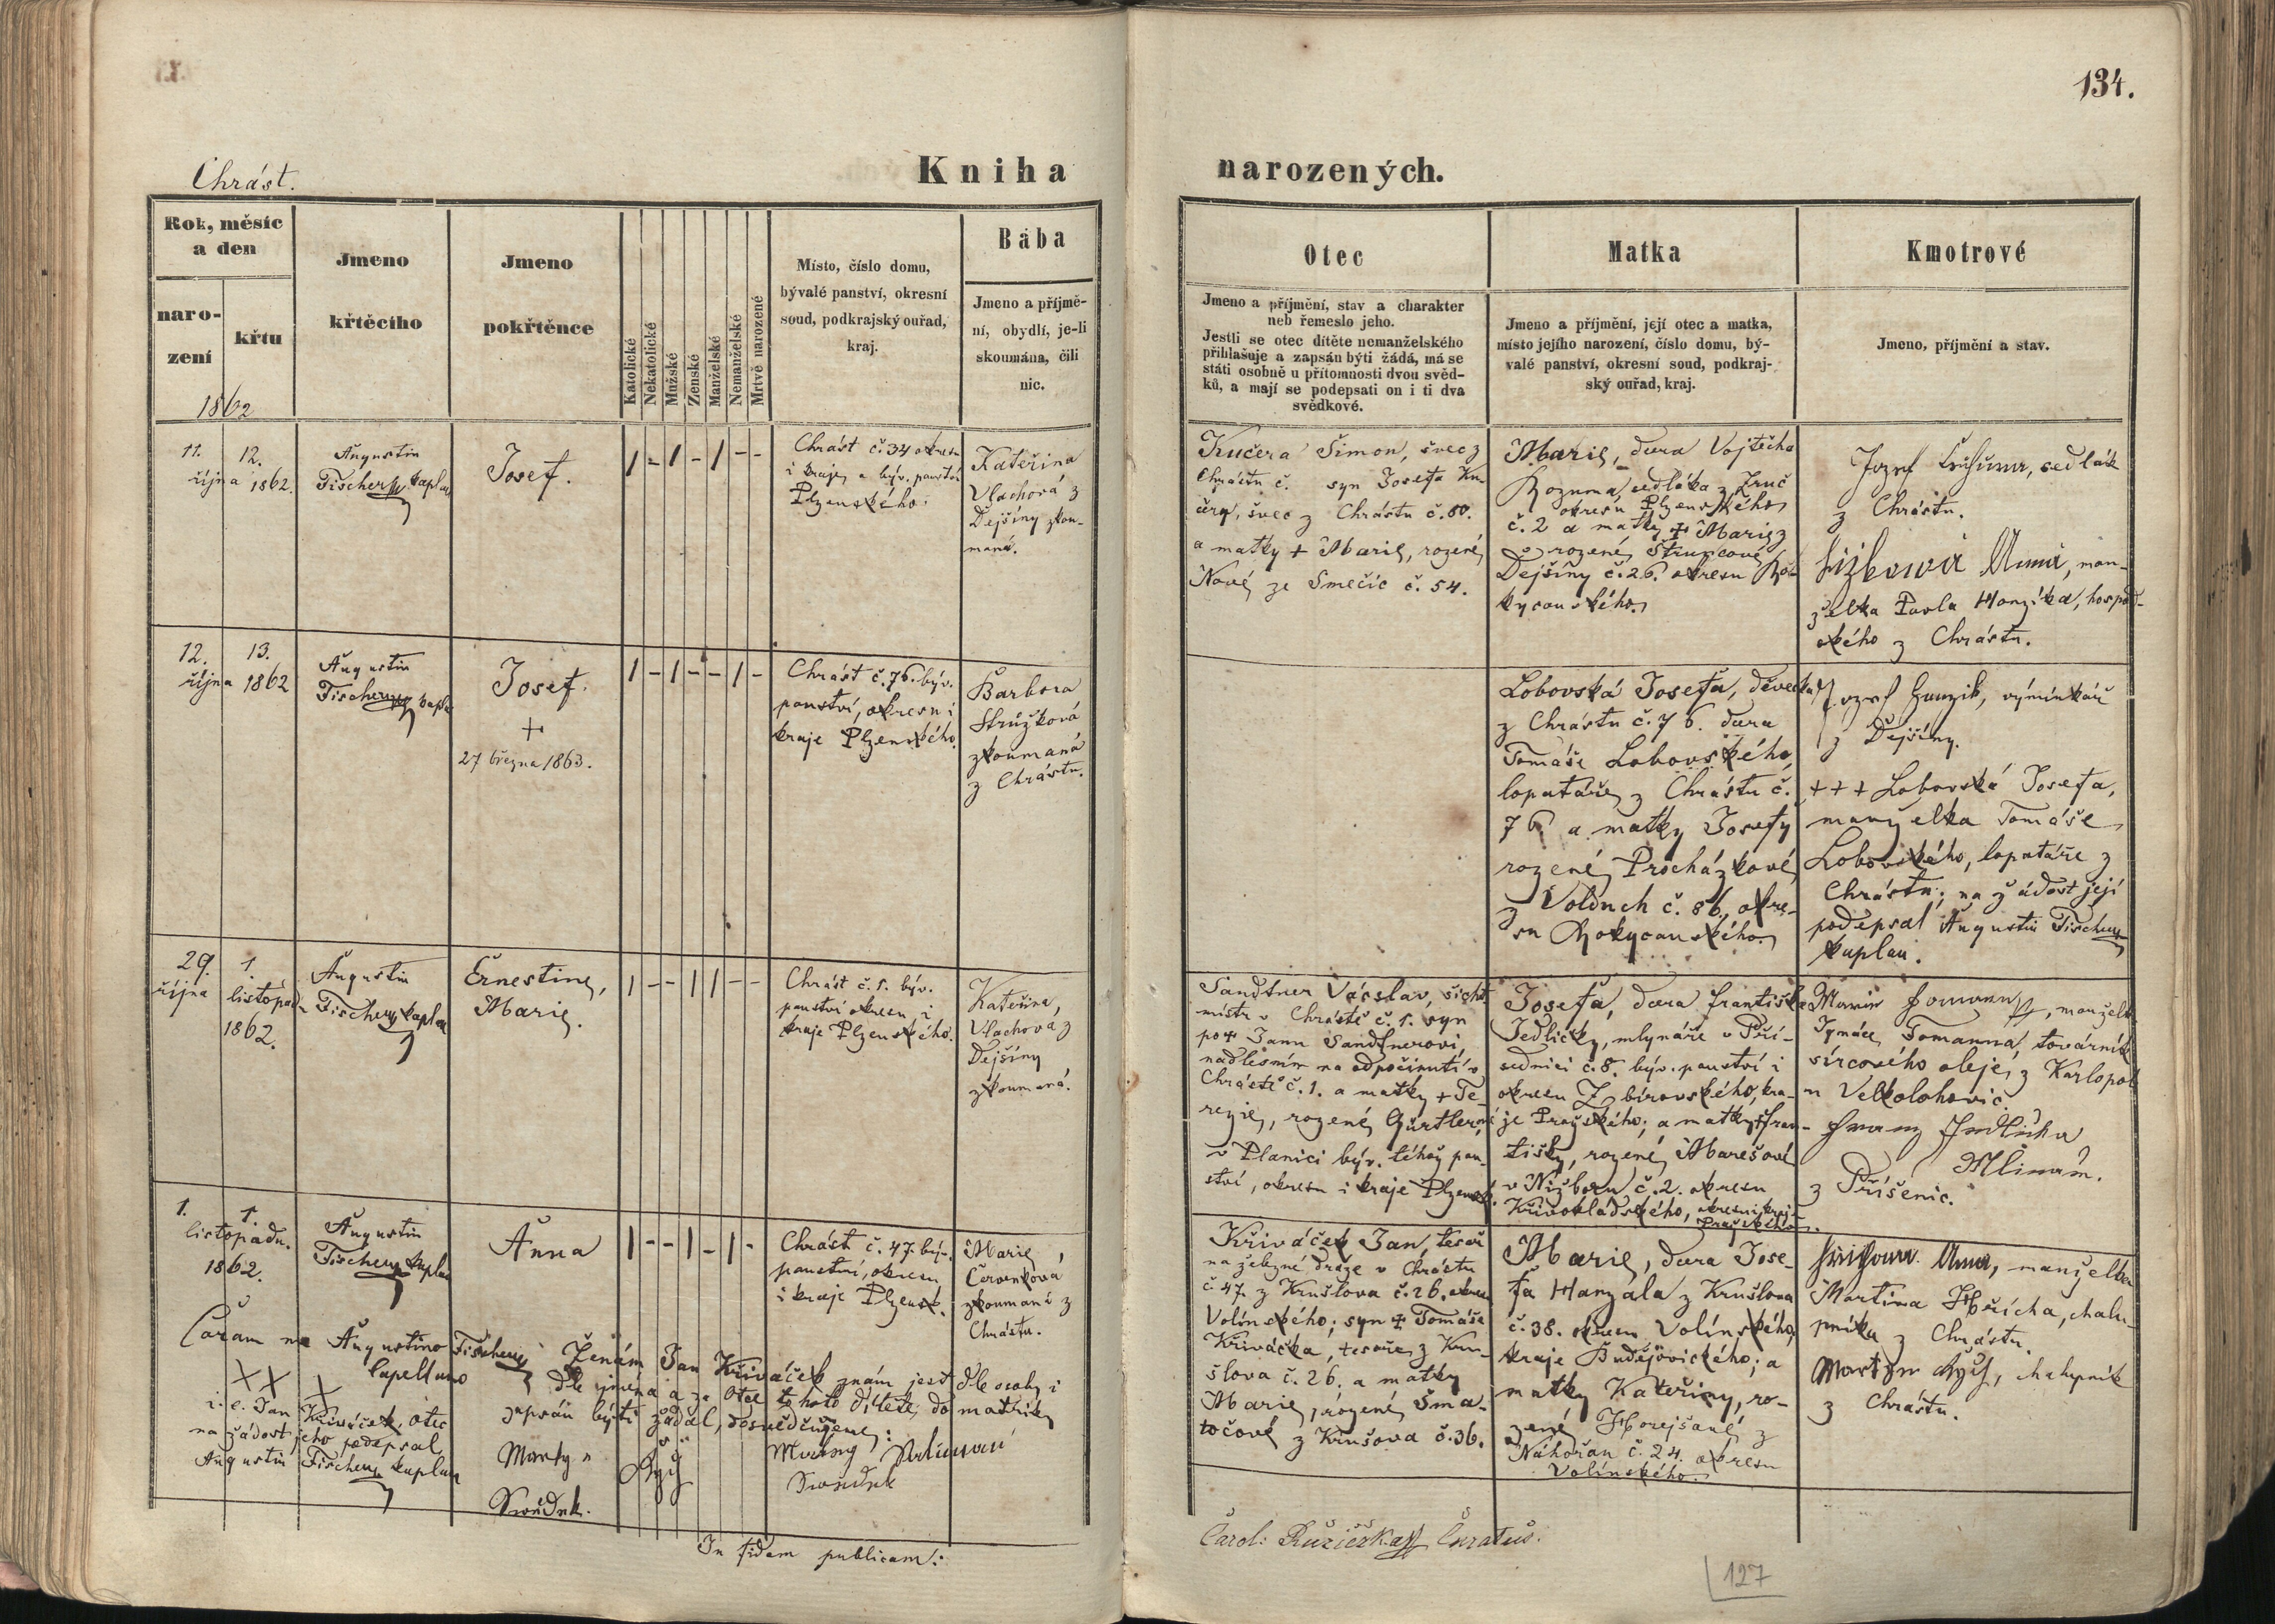 134.
Chrást.
Kniha narozených.
Rok, měsíc
a den
naro-
zení
křtu
1862
Jmeno
křtěcího
Jmeno
pokřtěnce
Katolické
Nekatolické
Mužské
Ženské
Manželské
Nemanželské
Mrtvě narozené
Místo, číslo domu,
bývalé panství, okresní
soud, podkrajský ouřad,
kraj.
Bába
Jmeno a příjmě-
ní, obydlí, je-li
skoumána, čili
nic.
Otec
Jmeno a příjmění, stav a charakter
neb řemeslo jeho.
Jestli se otec dítěte nemanželského
přihlašuje a zapsán býti žádá, má se
státi osobně u přítomnosti dvou svěd-
ků, a mají se podepsati on i ti dva
svědkové.
Matka
Jmeno a příjmění, její otec a matka,
místo jejího narození, číslo domu, bý-
valé panství, okresní soud, podkraj-
ský ouřad, kraj.
Kmotrové
Jmeno, příjmění a stav.
11. 12.
října 1862.
Augustin
Fischer kaplan
Josef.
1 - 1 - 1 - -
Chrást č. 34 okresu
i kraje a býv. panství
Plzenského.
Kateřina
Vlachová z
Dejšiny zkou-
maná.
Kučera Šimon, švec z
Chrástu č. syn Josefa Ku-
čery, švec z Chrástu č. 80.
a matky + Marie, rozené
Nové ze Smečic č. 54.
Marie, dcera Vojtěcha
Rozuma, sedláka z Zruč
okresu Plzenského
č. 2 a matky + Marie z
rozené Štruncové
Dejšiny č. 26. okresu Ro-
kycanského.
Jozef, sedlák
z Chrástu.
Anna, man-
želka Pavla Honzíka, hospod-
ského z Chrástu.
12. 13.
října 1862
Augustin
Fischer kaplan
Josef.
+
27 března 1863.
1 - 1 - - 1 -
Chrást č. 76. býv.
panství, okresu i
kraje Plzenského.
Barbora
Stružková
zkoumaná
z Chrástu.
Lobovská Josefa, děvečka
z Chrástu č. 76. dcera
Tomáše Lobovského,
lopatáře z Chrástu č.
76 a matky Josefy
rozené Procházkové
z Volduch č. 86, okre-
su Rokycanského.
Jozef Hanzik, výminkář
z Dejšiny.
+ + + Lobovská Josefa,
manželka Tomáše
Lobovského, lopatáře z
Chrástu; na žádost její
podepsal Augustin Fischer
kaplan.
29. 1.
října listopadu
1862.
Augustin
Fischer kaplan
Ernestine,
Marie.
1 - - 1 1 - -
Chrást č. 1. býv.
panství okresu i
kraje Plzenského.
Kateřina,
Vlachová z
Dejšiny
zkoumaná.
Sandtner Václav, šicht-
mistr v Chrástě č. 1. syn
po + Janu Sandtnerovi,
nadlesním na odpočinutí v
Chrástě č. 1. a matky + Te-
rezie, rozené Gürtlerové
v Planici býv. téhož pan-
ství, okresu i kraje Plzensk.
Josefa, dcera Františka
Jedličky, mlynáře v Při-
sednici č. 8. býv. panství i
okresu Zbirovského, kra-
je Pražského; a matky + Fran-
tišky, rozené Marešové
v Nižboru č. 2. okresu
Křivoklátského, okresu i kraje
Pražského.
Marie Tomann, manželka
Ignáce Tomanna, továrník
sírcového oleje, z Karlopol
u Velkolohovic.
Franz Jedlicka
Mlinař.
z Příšenic.
1. 1.
listopadu.
1862.
Augustin
Fischer kaplan
Anna
1 - - 1 - 1 -
Chrást č. 47. býv.
panství, okresu
i kraje Plzensk.
Marie,
Červenková
zkoumaná z
Chrástu.
Křiváček Jan, tesař
na železné dráze v Chrástu
č. 47. z Krušlova č. 26. okresu
Volínského; syn + Tomáše
Křiváčka, tesaře z Kru-
šlova č. 26. a matky
Marie, rozené Šma-
točové z Krušova č. 36.
Marie, dcera Jose-
fa Hanzala z Krušlova
č. 38. okresu Volínského,
kraje Budějovického; a
matky Kateřiny, ro-
zené Horejšané z
Náhořan č. 24. okresu
Volínského.
Anna, manželka
Martina Hřícha, chalu-
pníka z Chrástu.
Martin Ryš, chalupník
z Chrástu.
Coram me Augustino Fischer
Capellano
X X X
i. e. Jan Křiváček, otec
na žádost jeho podepsal
Augustin Fischer kaplan
Ženám Jan Křiváček znám jest dle osoby i
dle jména a za otce tohoto dítěte do matriky
zapsán býti žádal, dosvědčujeme:
Martyn Ryš
Swědek.
Swědek
In fidem publicam:
Carol: Růžička Curatus.
127